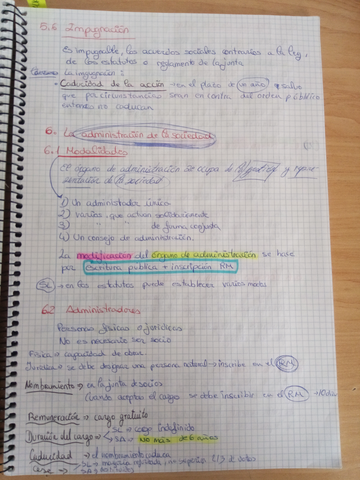 5.6 Impugnación
Es impugnable, los acuerdos sociales contrarios a la ley,
de los estatutos o reglamento de la junta
la impugnación:
• Caducidad de la acción → en el plazo de un año, salvo
que por circunstancias sean en contra del orden público
entonces no caducan.
6. La administración de la sociedad
6.1 Modalidades
El órgano de administración se ocupa de la gestión y repre
sentación de la sociedad
1) Un administrador único
2) varios, que actúan solidariamente
3) de forma conjunta
4) Un consejo de administración.
La modificación del órgano de administración se hace
por escritura publica + inscripción RM
SL → en los estatutos puede establecer varios modos
6.2 Administradores
Personas físicas o jurídicas
No es necesario ser socio
Física → capacidad de obrar
Jurídica → se debe designar una persona natural → inscribir en el RM
Nombramiento → a la junta de socios
Cuando acepta el cargo se debe inscribir en el RM → 10 días
Remuneración → cargo gratuito
Duración del cargo → SL → cargo indefinido
SA → no más de 6 años
Caducidad → el nombramiento caduca
Cese → SL → mayoría reforzada, no superior 2/3 d votos
SA →